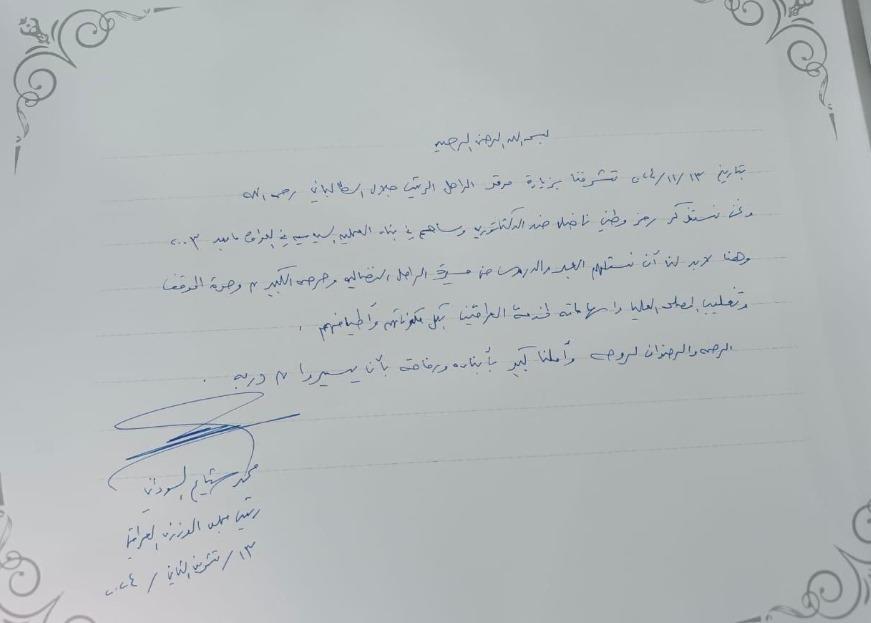 بسم الله الرحمن الرحيم
بتاريخ ١٣/١١/٢٠٢٤ تشرفنا بزيارة مرقد الراحل الرئيس جلال الطالباني رحمه الله
ونحن نستذكر رمز وطني ناضل ضد الدكتاتورية وساهم في بناء العملية السياسية في العراق ما بعد ٢٠٠٣
وهنا لابد لنا أن نستلهم العبر والدروس من مسيرة الراحل النضالية وحرصه الكبير على وحدة الموقف
وتغليب المصلحة العليا واسهاماته لخدمة العراقيين بكل مكوناتهم وأطيافهم .
الرحمة والرضوان لروحه وأملنا كبير بأبناءه ورفاقه بأن يسيروا على دربه .
محمد شياع السوداني
رئيس مجلس الوزراء العراقي
١٣/ تشرين الثاني / ٢٠٢٤